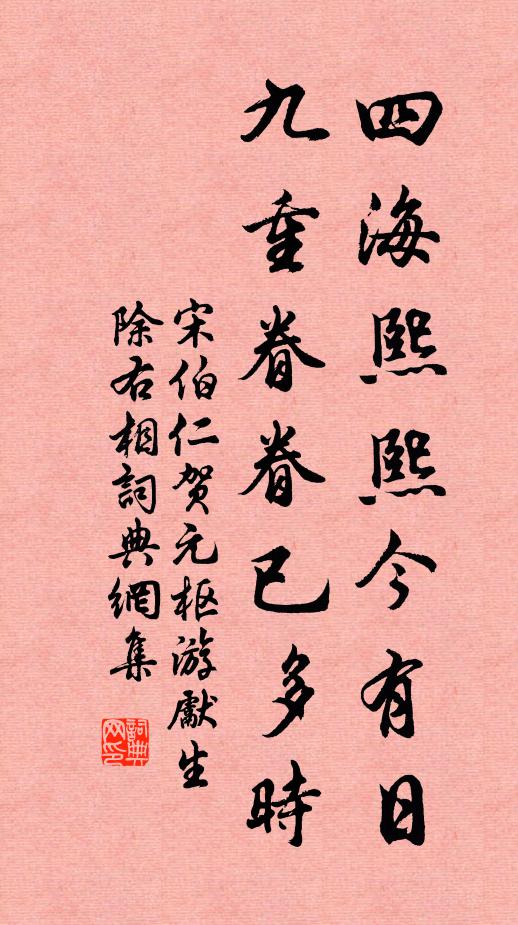 四海熙熙今有日
九重眷眷已多時
宋伯仁贺元枢游獻生
除右相詞典網集
詞典
网印